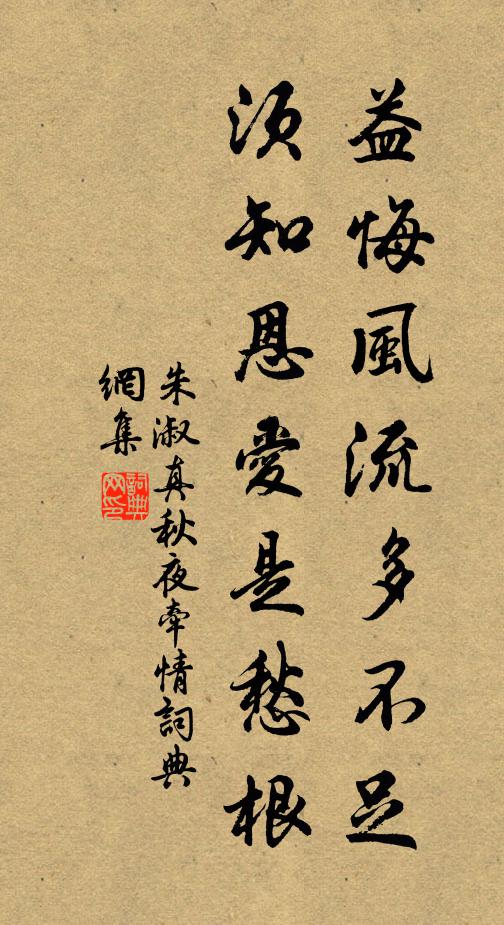 益悔風流多不足
須知恩愛是愁根
朱淑真秋夜牽情詞典
網集
詞典網印